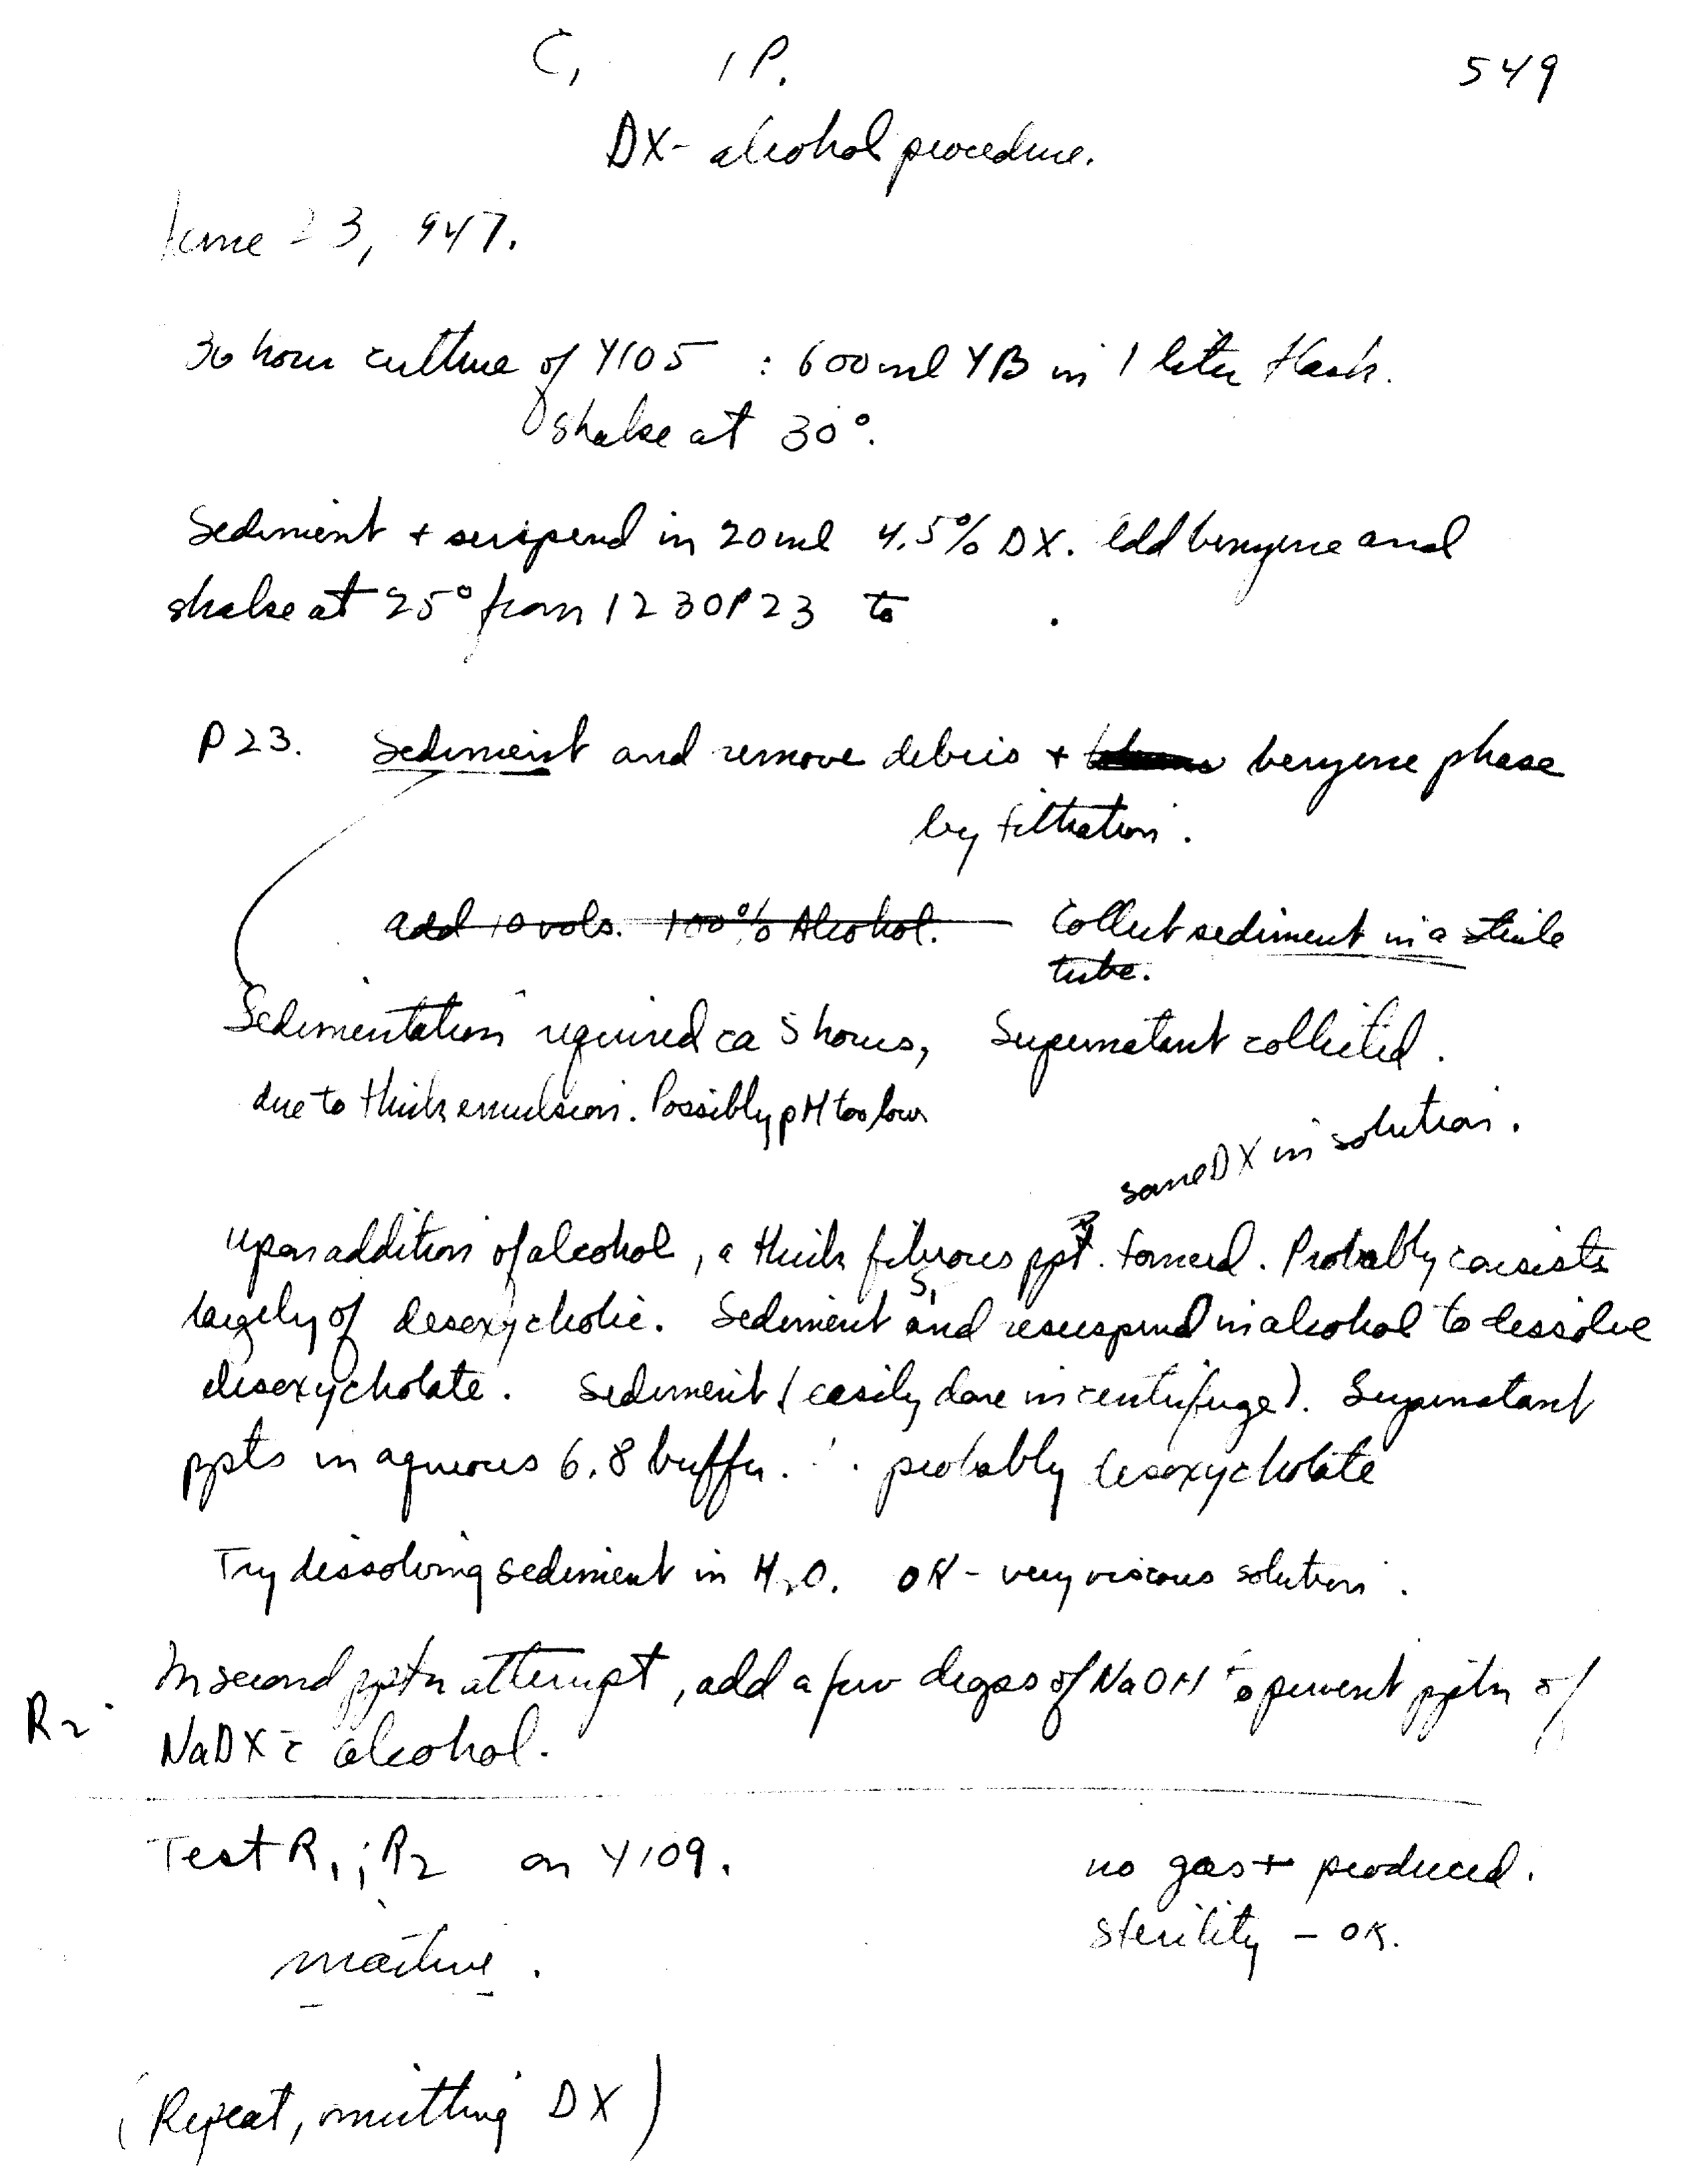 C, 1P. 549
DX- alcohol procedure.
June 23, 947.
36 hour culture of Y105 : 600ml YB in 1 liter flask.
shake at 30°.
Sediment + suspend in 20ml 4.5% DX. Add benzene and
shake at 25° from 1230P23 to .
P23. Sediment and remove debris + benzene phase
by filtration.
add 10 vols. 100% Alcohol. Collect sediment in a sterile
tube.
Sedimentation required ca 5 hours, Supernatant collected.
due to thick emulsion. Possibly pH too low
some DX in solution.
Upon addition of alcohol, a thick fibrous ppt. formed. Probably consists
largely of desoxycholic. Sediment and resuspend in alcohol to dissolve
S1
desoxycholate. Sediment (easily done in centrifuge). Supernatant
ppts in aqueous 6.8 buffer. ∴ probably desoxycholate
Try dissolving sediment in H2O. OK - very viscous solution.
In second pptn attempt, add a few drops of NaOH to prevent pptn of
R2 NaDX c̄ alcohol.
Test R1; R2 on Y109. no gas + produced.
sterility - OK.
inactive.
(Repeat, omitting DX)